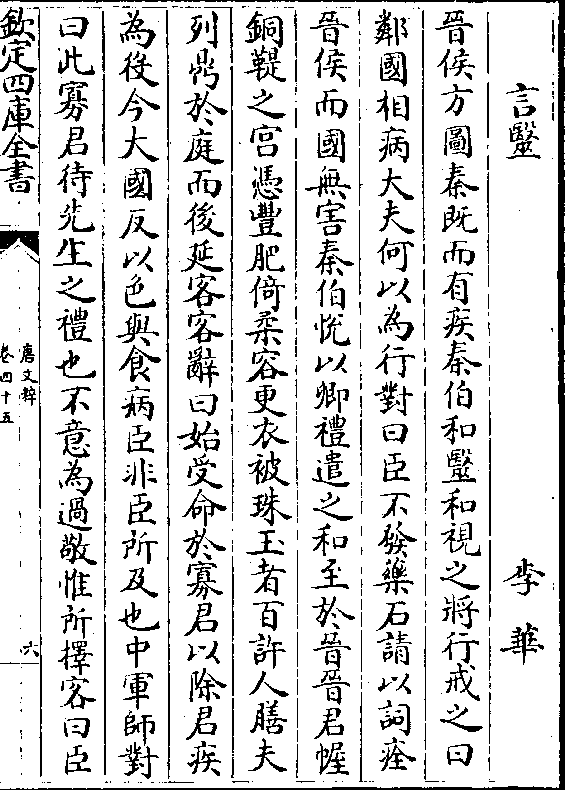 言毉　李華
晉侯方圖秦既而有疾秦伯和毉和視之將行戒之曰
鄰國相病大夫何以為行對曰臣不發藥石請以詞痊
晉侯而國無害秦伯悅以卿禮遣之和至於晉晉君幄
銅鞮之宫憑豐肥倚柔容更衣被珠玉者百許人膳夫
列鼎於庭而後延客客辭曰始受命於寡君以除君疾
為役今大國反以色與食病臣非臣所及也中軍師對
曰此寡君待先生之禮也不意為過敬惟所擇客曰臣
欽定四庫全書
唐文粹
卷四十五
六